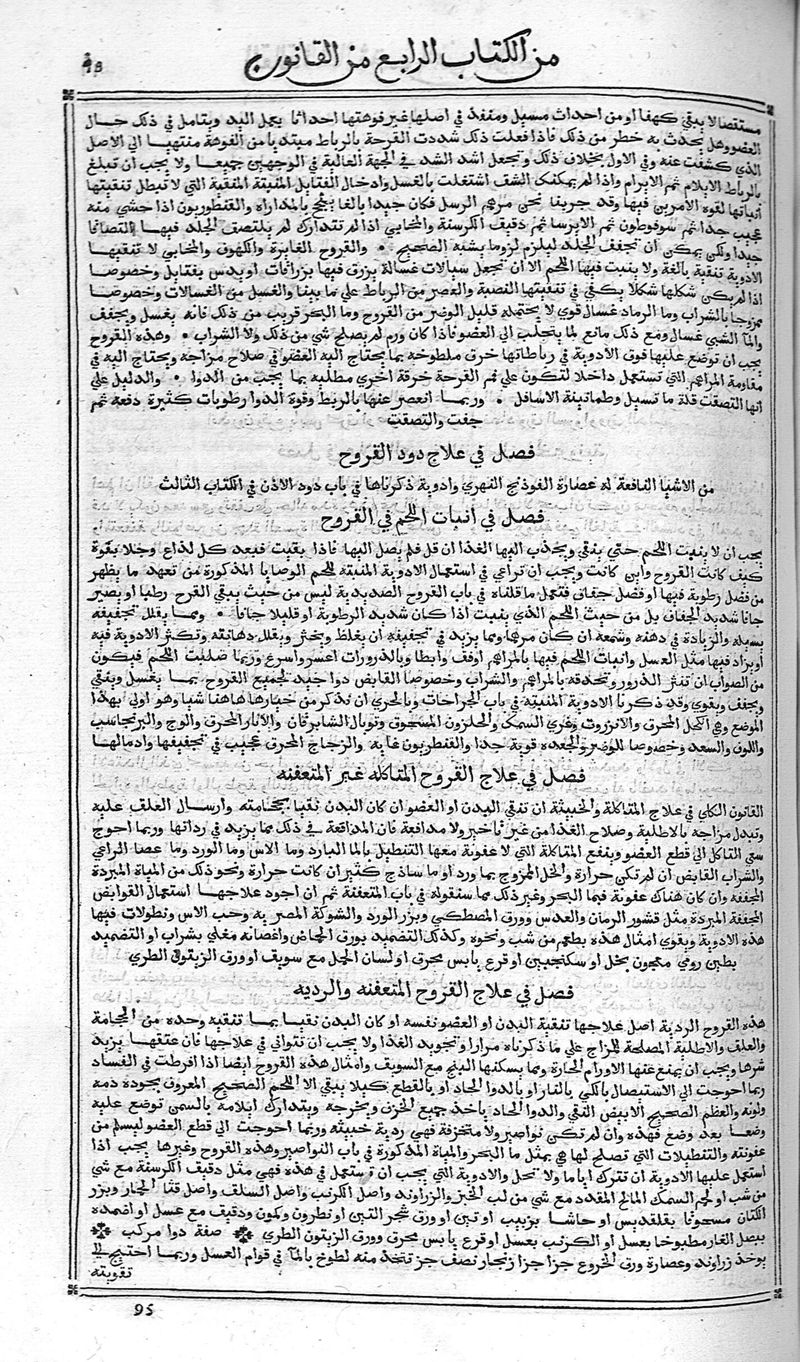 من الكتاب الرابع من القانون
مستقصا لا يبقي كهفا او من احداث مسيل ومنفذ في اصلها غير فوهتها احداثا يعمل اليد ويتامل في ذلك حال
العضو وهل يحدث به خطر من ذلك فاذا فعلت ذلك شددت القرحة بالرباط مبتديا من الفوهة منتهيا الي الاصل
الذي كشفت عنه وفي الاول بخلاف ذلك وتجعل اشد الشد في الجهة العالية في الوجهين جميعا ولا يجب ان تبلغ
بالرباط الايلام ثم الابرام واذا لم يمكنك الشف اشتغلت بالغسل وادخال الفتايل المنبتة المنقية التي لا تبطل تنقيتها
انباتها لقوه الامرين فيها وقد جربنا نحن مرهم الرسل فكان جيدا بالغا بالمداراه والقنطوريون اذا حشي منه
عجيب جدا ثم سوفوطون ثم الايرسا ثم دقيق الكرسنة والمخابي اذا لم تتدارك لم يلتصق الجلد فيها التصاقا
جيدا ولكن يمكن ان تجفف الجلد ليلزم لزوما يشبه الصحيح ٠ والقروح الغايرة والكهوف والمخابي لا تنقيها
الادوية تنقية بالغة ولا ينبت فيها اللحم الا ان تجعل سيالات غسالة يزرق فيها بزراقات او يدس بفتايل وخصوصا
اذا لم يكن شكلها شكلا يكفي في تنقيتها النصبة والعصر من الرباط علي ما بينا والغسل من الغسالات وخصوصا
ممزوجا بالشراب وما الرماد غسال قوي لا يحتمله قليل الوضر من القروح وما البحر قريب من ذلك فانه يغسل ويجفف
والما الشبي غسال ومع ذلك مانع لما يتحلب الي العضو فاذا كان ورم لم يصلح شي من ذلك ولا الشراب ٠ وهذه القروح
يجب ان توضع عليها فوق الادوية في رباطاتها خرق ملطوخه بما يحتاج اليه العضو في صلاح مزاجه ويحتاج اليه في
مقاومة المراهم التي تستعمل داخلا لتكون علي فم القرحة خرقة اخري مطليه بما يجب من الدوا ٠ والدليل علي
انها التصقت قلة ما تسيل وطمانينة الاسافل ٠ وربما انعصر عنها بالربط وقوة الدوا رطوبات كثيرة دفعه ثم
جفت والتصقت
فصل في علاج دود القروح
من الاشيا النافعة له عصارة الفوذنج النهري وادوية ذكرناها في باب دود الاذن في الكتاب الثالث
فصل في انبات اللحم في القروح
يجب ان لا ينبت اللحم حتي ينقي ويجذب اليها الغذا ان قل فلم يصل اليها فاذا بقيت فبعد كل لذاع وجلا بقوة
كيف كانت القروح واين كانت ويجب ان تراعي في استعمال الادوية المنبته للحم الوصايا المذكورة من تعهد ما يظهر
من فضل رطوبة فيها او فضل جفاف فتعمل ما قلناه في باب القروح الصديدية ليس من حيث يبقي القرح رطبا او يصير
جافا شديد الجفاف بل من حيث اللحم الذي ينبت اذا كان شديد الرطوبة او قليلا جافا ٠ ومما يقلل تجفيفه
بسيله والزيادة في دهنه وشمعه ان كان مرهما ومما يزيد في تجفيفه ان يغلظ ويثخن ويقلل دهانته وتكثر الادوية فيه
او يزاد فيها مثل العسل وانبات اللحم فيها بالمراهم اوفق وابطا وبالذرورات اعسر واسرع وربما صلبت اللحم فيكون
من الصواب ان تنثر الذرور وتحدقه بالمراهم والشراب وخصوصا القابض دوا جيد لجميع القروح بما يغسل وينقي
ويجفف ويقوي وقد ذكرنا الادوية المنبته في باب الجراحات وبالحري ان نذكر من خيارها هاهنا شيا وهو اولي بهذا
الموضع وهي الكحل المحرق والانزروت وغري السمك والحلزون المسحوق وتوبال الشابرقان والابار المحرق والوج والبرنجاسب
واللوف والسعد وخصوصا للوضر والجعده قوية جدا والقنطريون غايه والزجاج المحرق عجيب في تجفيفها وادمالها
فصل في علاج القروح المتاكله غير المتعفنه
القانون الكلي في علاج المتاكلة والخبيثة ان تنقي البدن او العضو ان كان البدن نقيا بحجامته وارسال العلق عليه
وتبديل مزاجه بالاطلية وصلاح الغذا من غير تاخير ولا مدافعة فان المدافعة في ذلك مما يزيد في رداتها وربما احوج
سئي التاكل الي قطع العضو وينفع المتاكلة التي لا عفونة معها التنطيل بالما البارد وما الاس وما الورد وما عصا الراعي
والشراب القابض ان لم تكن حرارة والخل الممزوج بما ورد او ما ساذج كثير ان كانت حرارة ونحو ذلك من المياه المبردة
المجففة وان كان هناك عفونة فيما البحر وغير ذلك مما سنقوله في باب المتعفنة ثم ان اجود علاجها استعمال القوابض
المجففة المبردة مثل قشور الرمان والعدس وورق المصطكي وبزر الورد والشوكة المصريه وحب الاس ونطولات فيها
هذه الادوية ويقوي امثال هذه بطعم من شب ونحوه وكذلك التضميد بورق الحماض واغصانه مغلي بشراب او التضميد
بطين رومي معجون بخل او سكنجبين او قرع يابس محرق او لسان الحمل مع سويق او ورق الزيتون الطري
فصل في علاج القروح المتعفنه والرديه
هذه القروح الردية اصل علاجها تنقية البدن او العضو نفسه او كان البدن نقيا بما تنقيه وحده من الحجامة
والعلق والاطلية المصلحة للمزاج علي ما ذكرناه مرارا وتجويد الغذا ولا يجب ان تتواني في علاجها فان عتقها يزيد
شرها ويجب ان يمنع عنها الاورام الحارة ومما يسكنها البنج مع السويق وامثال هذه القروح ايضا اذا افرطت في الفساد
ربما احوجت الي الاستيصال بالكي بالنار او بالدوا الحاد او بالقطع كيلا يبقي الا اللحم الصحيح المعروف بجودة دمه
ولونه والعظم الصحيح الابيض النقي والدوا الحاد ياخذ جميع الخزف ويخرجه ويتدارك ايلامه بالسمن توضع عليه
وضعا بعد وضع فهذه وان لم تكن نواصير ولا متخزفة فهي ردية خبيثه وربما احوجت الي قطع العضو ليسلم من
عفونته والتنطيلات التي تصلح لها هي بمثل ما البحر والمياه المذكورة في باب النواصير وهذه القروح وغيرها يجب اذا
استعمل عليها الادوية ان تترك اياما ولا تحل والادوية التي يجب ان تستعمل في هذه فهي مثل دقيق الكرسنة مع شي
من شب او لحم السمك المالح المقدد مع شي من لب الخبز والزراوند واصل الكرنب واصل السلق واصل قثا الحمار وبزر
الكتان مسحوقا بقلقديس او حاشا بزبيب او تين او ورق شجر التين او نطرون وكمون ودقيق مع عسل او اضمده
ببصل الفار مطبوخا بعسل او الكرنب بعسل او قرع يابس محرق وورق الزيتون الطري صفة دوا مركب
يوخذ زراوند وعصارة ورق الخروع جزا جزا زنجار نصف جز تتخذ منه لطوخ بالما في قوام العسل وربما احتيج الي
تقويته
95